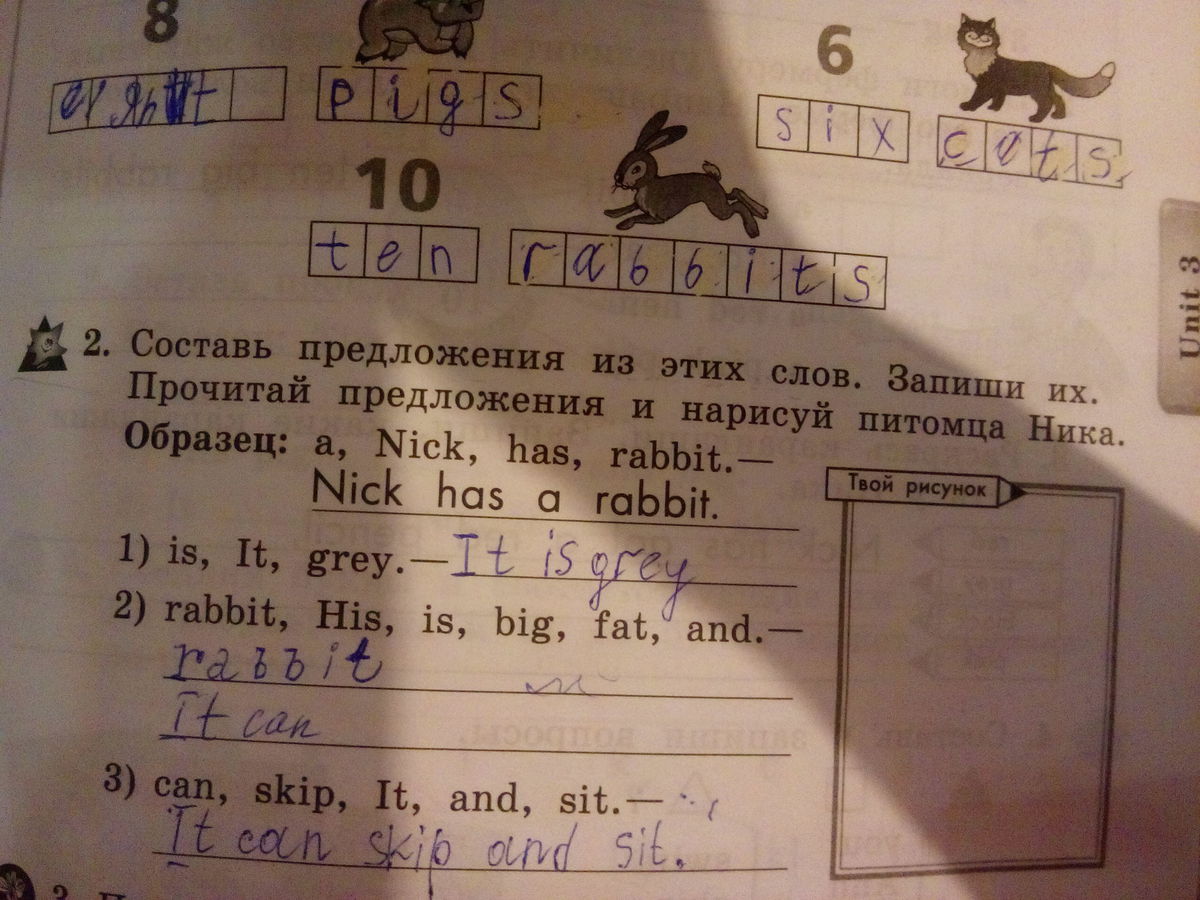 8
pigs
6
six cats
10
ten rabbits
Unit 3
2. Составь предложения из этих слов. Запиши их.
Прочитай предложения и нарисуй питомца Ника.
Образец: a, Nick, has, rabbit.—
Nick has a rabbit.
Твой рисунок
1) is, It, grey.—It is grey
2) rabbit, His, is, big, fat, and.—
rabbit
It can
3) can, skip, It, and, sit.—
It can skip and sit.